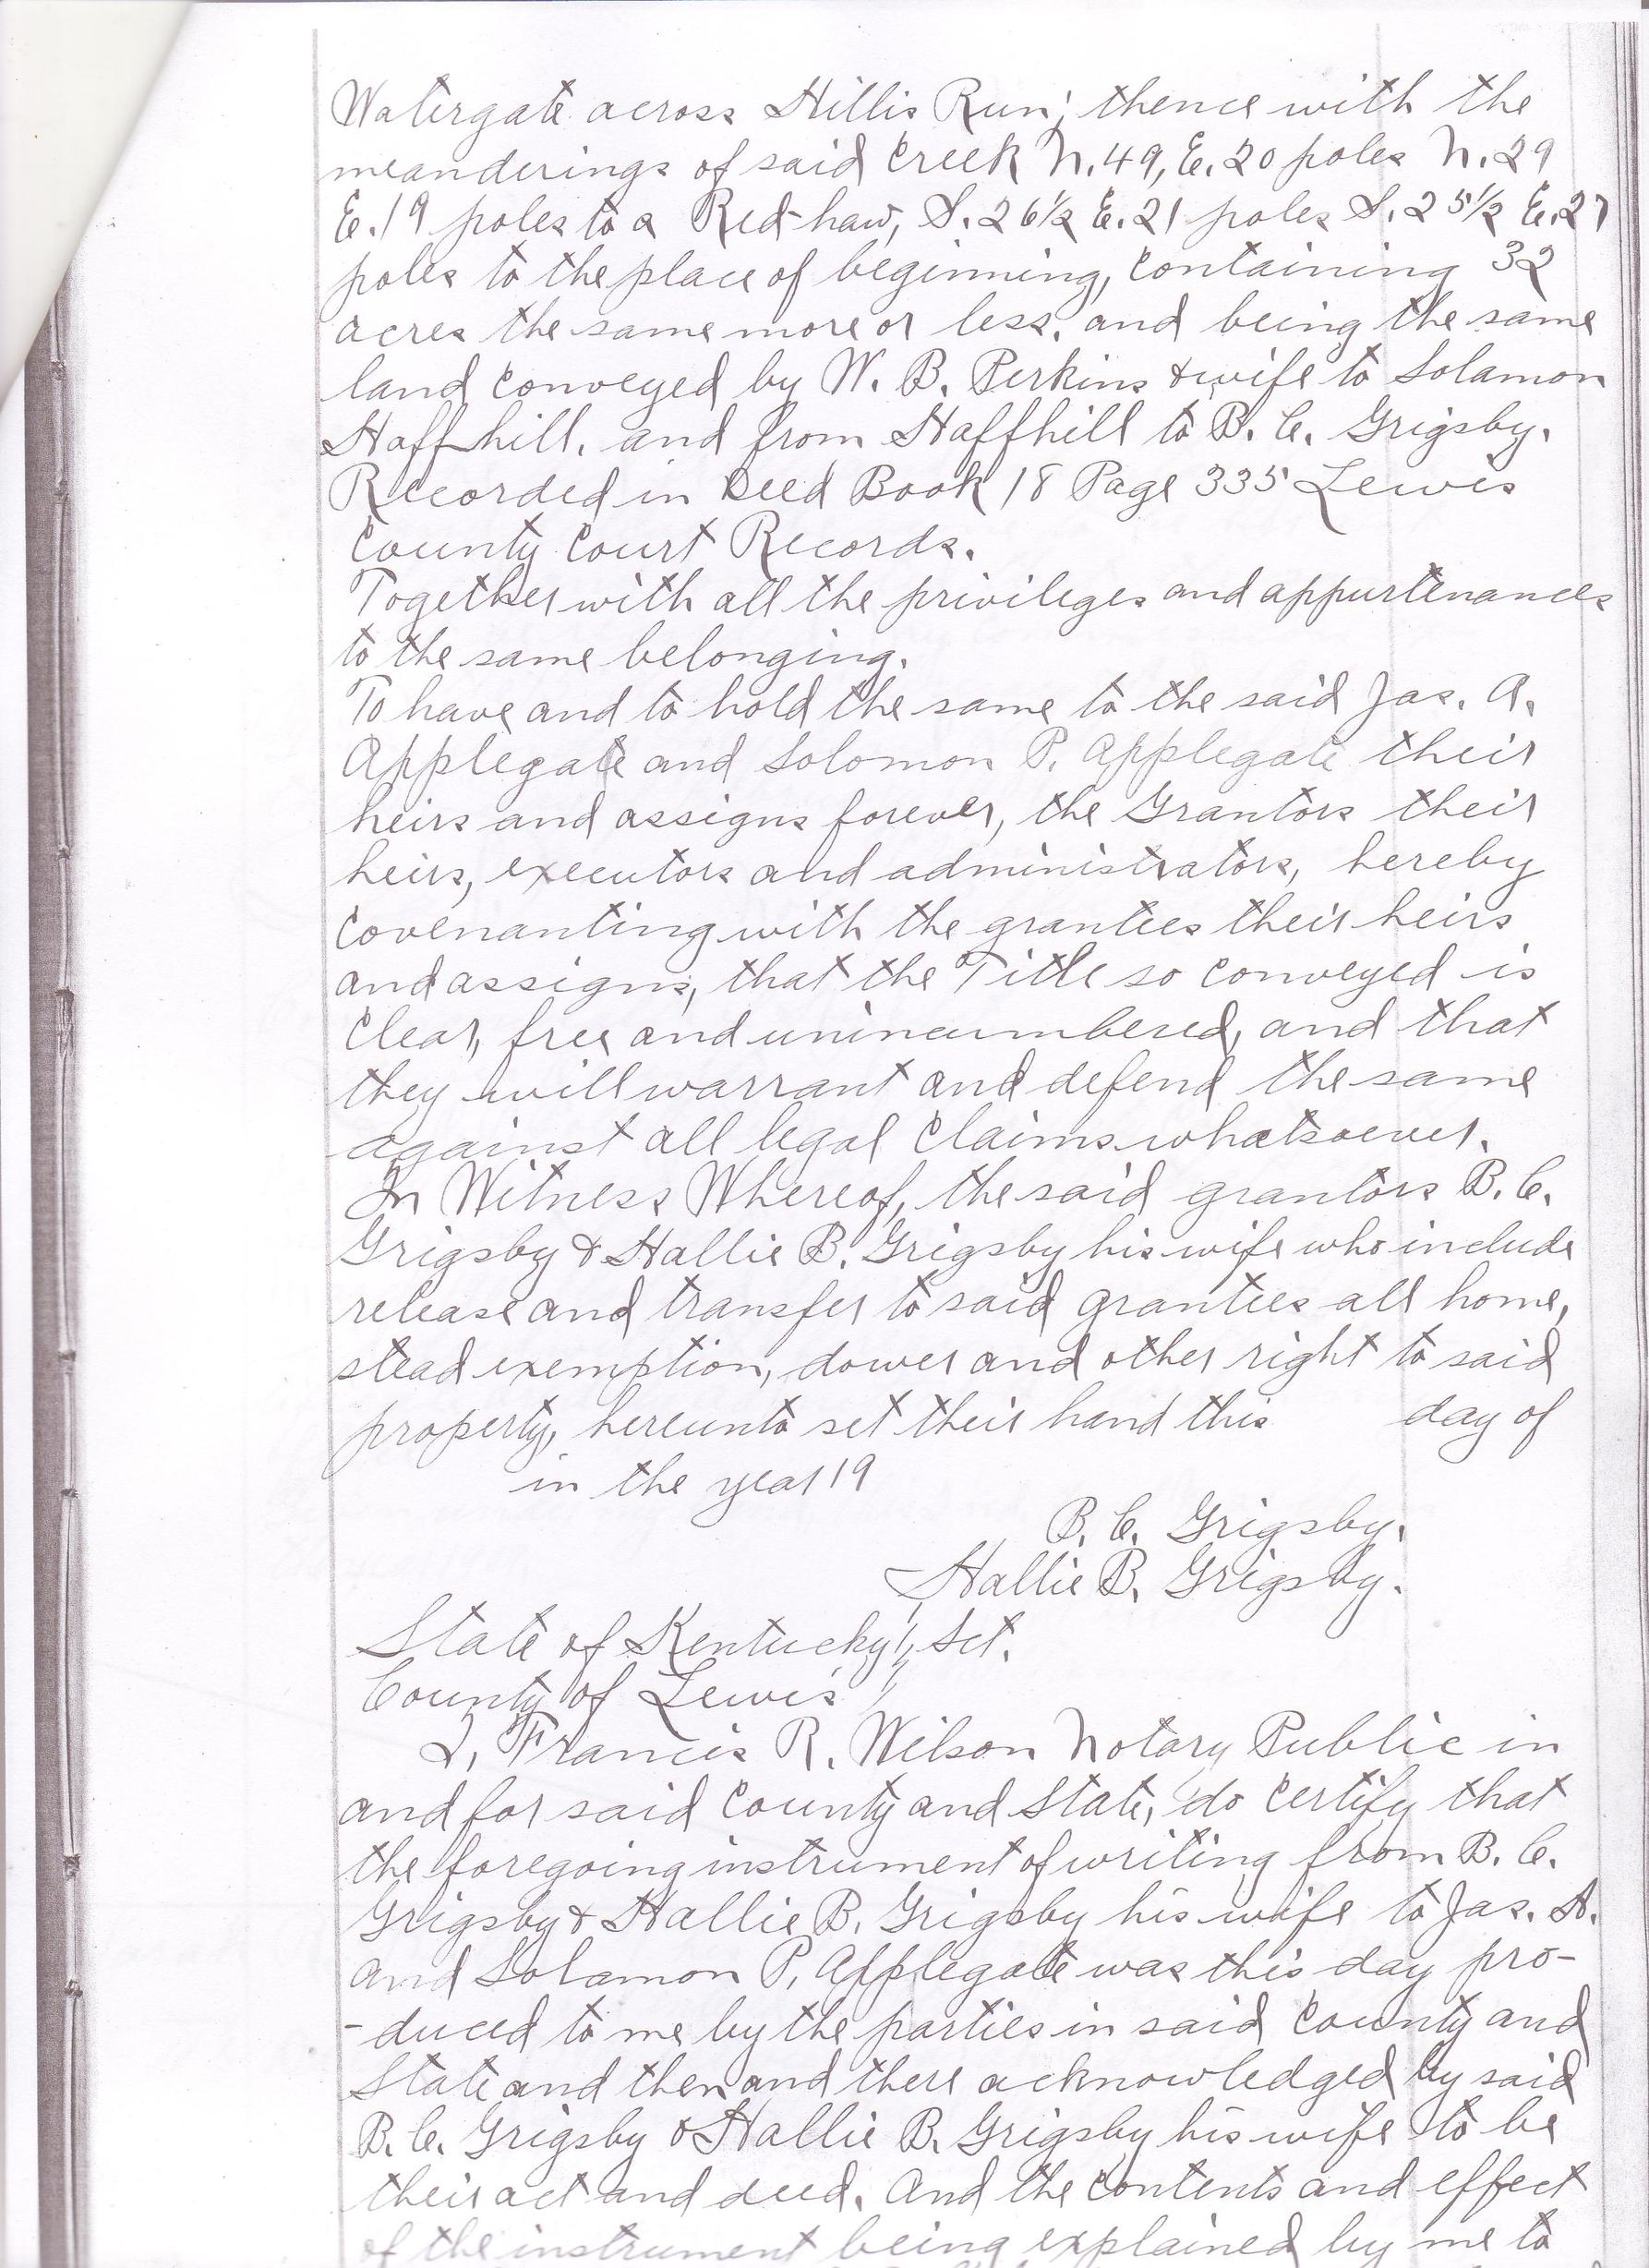 Watergate across Hillis Run; thence with the
meanderings of said Creek N. 49, E. 20 poles N. 29
E. 19 poles to a Red-haw, S. 26½ E. 21 poles S. 25½ E. 27
poles to the place of beginning, containing 32
acres the same more or less. and being the same
land conveyed by W. B. Perkins & wife to Solamon
Haffhill. and from Haffhill to B. C. Grigsby.
Recorded in Deed Book 18 Page 335 Lewis
County Court Records.
Together with all the privileges and appurtenances
to the same belonging.
To have and to hold the same to the said Jas. A.
Applegate and Solomon P. Applegate their
heirs and assigns forever, the Grantors their
heirs, executors and administrators, hereby
Covenanting with the grantees their heirs
and assigns, that the Title so conveyed is
Clear, free and unincumbered, and that
they will warrant and defend the same
against all legal Claims whatsoever.
In Witness Whereof, the said grantors B. C.
Grigsby & Hallie B. Grigsby his wife who include
release and transfer to said grantees all home,
stead exemption, dower and other right to said
property, hereunto set their hand this day of
in the year 19
B. C. Grigsby.
Hallie B. Grigsby.
State of Kentucky, Sct.
County of Lewis
I, Francis R. Wilson Notary Public in
and for said County and State, do certify that
the foregoing instrument of writing from B. C.
Grigsby & Hallie B. Grigsby his wife to Jas. A.
and Solamon P. Applegate was this day pro-
-duced to me by the parties in said County and
State and then and there acknowledged by said
B. C. Grigsby & Hallie B. Grigsby his wife to be
their act and deed. And the Contents and effect
of the instrument being explained by me to